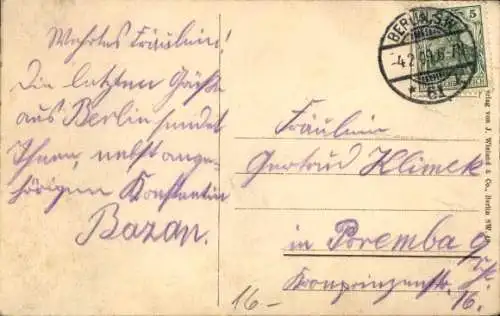 Wehrtes Fräulein!
Die letzten Grüße
aus Berlin sendet
Ihnen, nebst ange-
hörigen Konstantin
Bazan.
BERLIN S.W.
-4.2.09.6-7N.
* 61
5
Fräulein
Gertrud Klimek
in Poremba O/S.
Kronprinzenstr. 16.
16-
Verlag von J. Wieland & Co., Berlin SW.